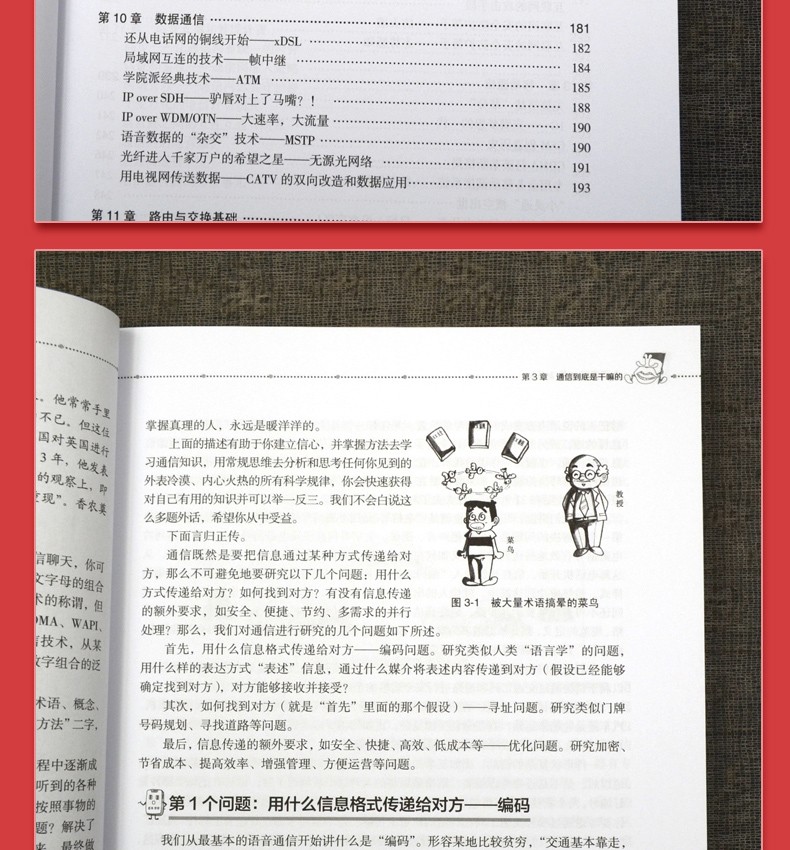 第 10 章 数据通信 181
还从电话网的铜线开始——xDSL 182
局域网互连的技术——帧中继 184
学院派经典技术——ATM 185
IP over SDH——驴唇对上了马嘴？！ 188
IP over WDM/OTN——大速率，大流量 190
语音数据的“杂交”技术——MSTP 190
光纤进入千家万户的希望之星——无源光网络 191
用电视网传送数据——CATV 的双向改造和数据应用 193
第 11 章 路由与交换基础
。他常常手里
不已。但这位
国对英国进行
3 年，他发表
的观察上，即
变现”。香农奠
信聊天，你可
文字母的组合
术的称谓，但
DMA、WAPI、
信技术，从某
数字组合的泛
术语、概念、
方法”二字，
程中逐渐成
听到的各种
按照事物的
题？解决了
来，最终做
第 3 章 通信到底是干嘛的
掌握真理的人，永远是暖洋洋的。
上面的描述有助于你建立信心，并掌握方法去学
习通信知识，用常规思维去分析和思考任何你见到的
外表冷漠、内心火热的所有科学规律，你会快速获得
对自己有用的知识并可以举一反三。我们不会白说这
么多题外话，希望你从中受益。
下面言归正传。
通信既然是要把信息通过某种方式传递给对
方，那么不可避免地要研究以下几个问题：用什么
方式传递给对方？如何找到对方？有没有信息传递
的额外要求，如安全、便捷、节约、多需求的并行
处理？那么，我们对通信进行研究的几个问题如下所述。
教授
菜鸟
图 3-1 被大量术语搞晕的菜鸟
首先，用什么信息格式传递给对方——编码问题。研究类似人类“语言学”的问题，
用什么样的表达方式“表述”信息，通过什么媒介将表述内容传递到对方（假设已经能够
确定找到对方），对方能够接收并接受？
其次，如何找到对方（就是“首先”里面的那个假设）——寻址问题。研究类似门牌
号码规划、寻找道路等问题。
最后，信息传递的额外要求，如安全、快捷、高效、低成本等——优化问题。研究加密、
节省成本、提高效率、增强管理、方便运营等问题。
第 1 个问题：用什么信息格式传递给对方——编码
我们从最基本的语音通信开始讲什么是“编码”。形容某地比较贫穷，“交通基本靠走，